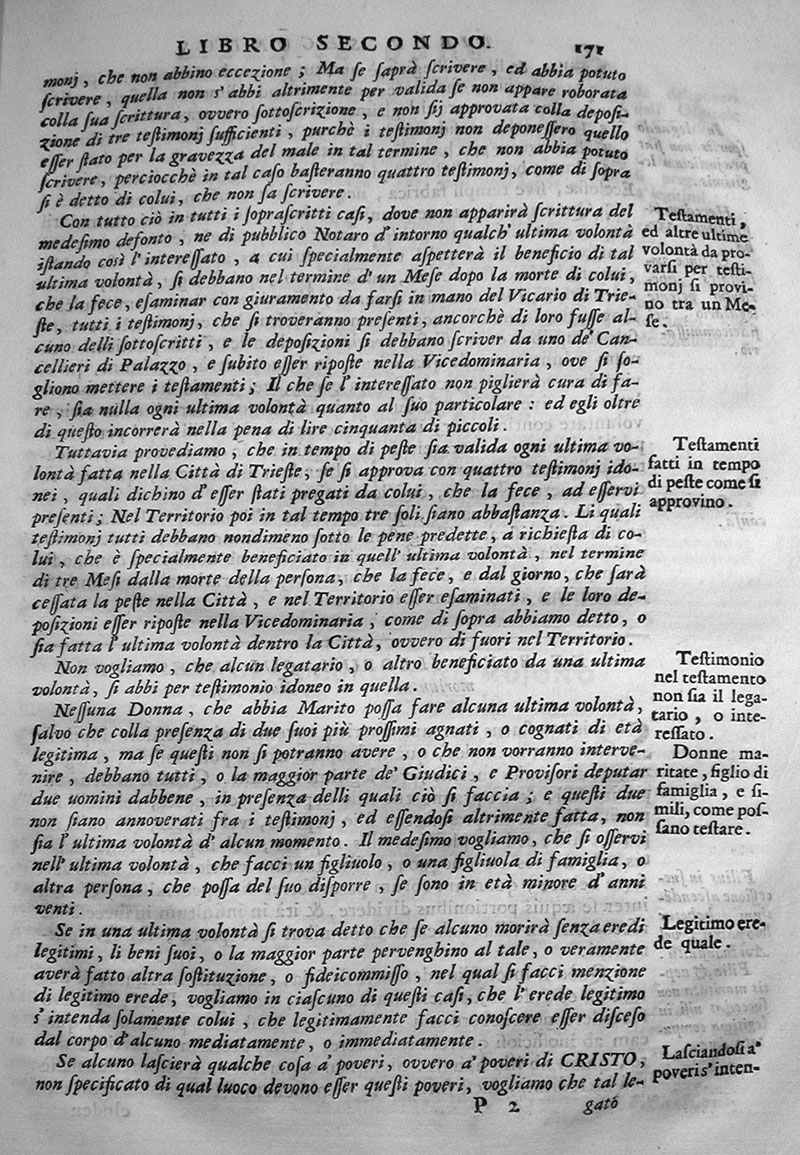 LIBRO SECONDO. 171
monj, che non abbino eccezione; Ma ſe ſaprà ſcrivere, ed abbia potuto
ſcrivere, quella non s' abbi altrimente per valida ſe non appare roborata
colla ſua ſcrittura, ovvero ſottoſcrizione, e non ſij approvata colla depoſi-
zione di tre teſtimonj ſufficienti, purchè i teſtimonj non deponeſſero quello
eſſer ſtato per la gravezza del male in tal termine, che non abbia potuto
ſcrivere, perciocchè in tal caſo baſteranno quattro teſtimonj, come di ſopra
ſi è detto di colui, che non ſa ſcrivere.
Con tutto ciò in tutti i ſopraſcritti caſi, dove non apparirà ſcrittura del
medeſimo defonto, ne di pubblico Notaro d'intorno qualch' ultima volontà
iſtando così l'intereſſato, a cui ſpecialmente aſpetterà il beneficio di tal
ultima volontà, ſi debbano nel termine d'un Meſe dopo la morte di colui,
che la fece, eſaminar con giuramento da farſi in mano del Vicario di Trie-
ſte, tutti i teſtimonj, che ſi troveranno preſenti, ancorchè di loro fuſſe al-
cuno delli ſottoſcritti, e le depoſizioni ſi debbano ſcriver da uno de' Can-
cellieri di Palazzo, e ſubito eſſer ripoſte nella Vicedominaria, ove ſi ſo-
gliono mettere i teſtamenti; Il che ſe l' intereſſato non piglierà cura di fa-
re, ſia nulla ogni ultima volontà quanto al ſuo particolare: ed egli oltre
di queſto incorrerà nella pena di lire cinquanta di piccoli.
Tuttavia provediamo, che in tempo di peſte ſia valida ogni ultima vo-
lontà fatta nella Città di Trieſte, ſe ſi approva con quattro teſtimonj ido-
nei, quali dichino d'eſſer ſtati pregati da colui, che la fece, ad eſſervi
preſenti; Nel Territorio poi in tal tempo tre ſoli ſiano abbaſtanza. Li quali
teſtimonj tutti debbano nondimeno ſotto le pene predette, a richieſta di co-
lui, che è ſpecialmente beneficiato in quell' ultima volontà, nel termine
di tre Meſi dalla morte della perſona, che la fece, e dal giorno, che ſarà
ceſſata la peſte nella Città, e nel Territorio eſſer eſaminati, e le loro de-
poſizioni eſſer ripoſte nella Vicedominaria, come di ſopra abbiamo detto, o
ſia fatta l'ultima volontà dentro la Città, ovvero di fuori nel Territorio.
Non vogliamo, che alcun legatario, o altro beneficiato da una ultima
volontà, ſi abbi per teſtimonio idoneo in quella.
Neſſuna Donna, che abbia Marito poſſa fare alcuna ultima volontà,
ſalvo che colla preſenza di due ſuoi più proſſimi agnati, o cognati di età
legitima, ma ſe queſti non ſi potranno avere, o che non vorranno interve-
nire, debbano tutti, o la maggior parte de' Giudici, e Proviſori deputar
due uomini dabbene, in preſenza delli quali ciò ſi faccia; e queſti due
non ſiano annoverati fra i teſtimonj, ed eſſendoſi altrimente fatta, non
ſia l'ultima volontà d'alcun momento. Il medeſimo vogliamo, che ſi oſſervi
nell' ultima volontà, che facci un figliuolo, o una figliuola di famiglia, o
altra perſona, che poſſa del ſuo diſporre, ſe ſono in età minore d'anni
venti.
Se in una ultima volontà ſi trova detto che ſe alcuno morirà ſenza eredi
legitimi, li beni ſuoi, o la maggior parte pervenghino al tale, o veramente
averà fatto altra ſoſtituzione, o fideicommiſſo, nel qual ſi facci menzione
di legitimo erede, vogliamo in ciaſcuno di queſti caſi, che l'erede legitimo
s'intenda ſolamente colui, che legitimamente facci conoſcere eſſer diſceſo
dal corpo d'alcuno mediatamente, o immediatamente.
Se alcuno laſcierà qualche coſa a' poveri, ovvero a' poveri di CRISTO,
non ſpecificato di qual luoco devono eſſer queſti poveri, vogliamo che tal le-
P 2 gató
Teſtamenti,
ed altre ultime
volontà da pro-
varſi per teſti-
monj ſi provi-
no tra un Me-
ſe.
Teſtamenti
fatti in tempo
di peſte come ſi
approvino.
Teſtimonio
nel teſtamento
non ſia il lega-
tario, o inte-
reſſato.
Donne ma-
ritate, figlio di
famiglia, e ſi-
mili, come poſ-
ſano teſtare.
Legitimo ere-
de quale.
Laſciandoſi a'
poveri s' inten-